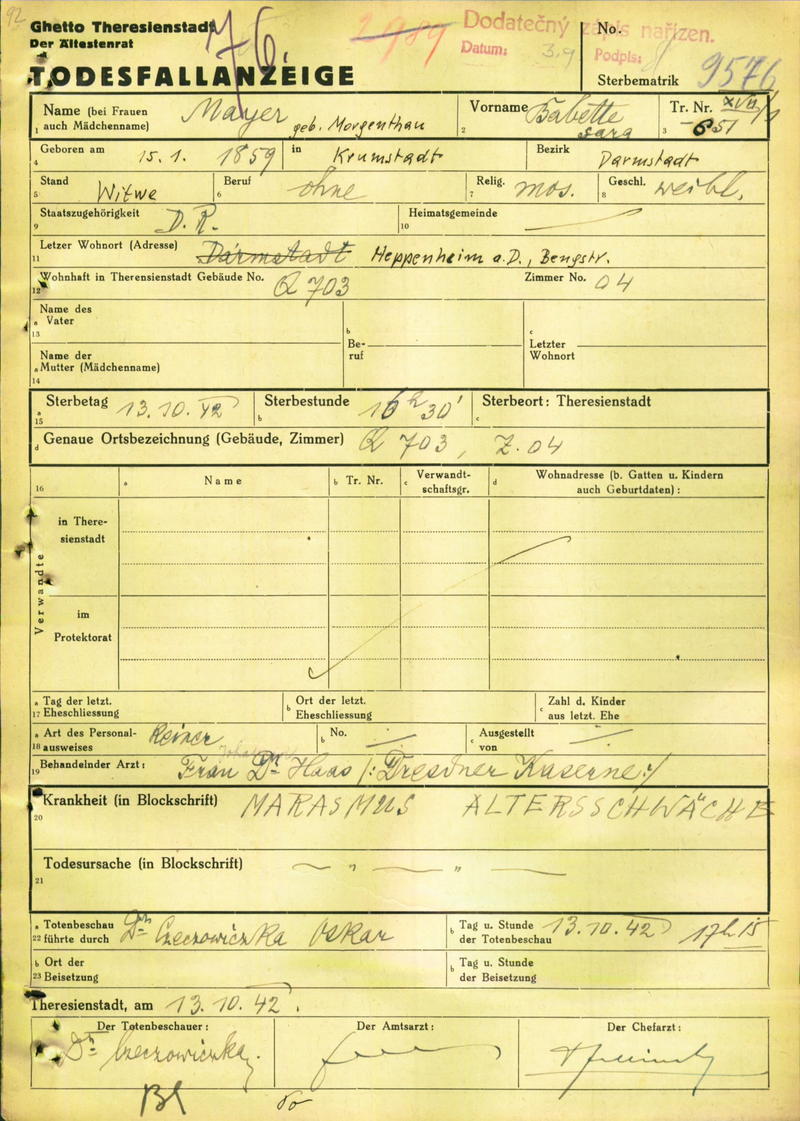 92
Ghetto Theresienstadt
Der Ältestenrat
TODESFALLANZEIGE
76
2989
Dodatečný zápis nařízen.
Datum: 3.9 Podpis:
No.
Sterbematrik 9576
Name (bei Frauen auch Mädchenname) Mayer geb. Morgenthau
1
Vorname Babette Sara
2
Tr. Nr. XVII/1 - 651
3
Geboren am 15. 1. 1859 in Krumstadt Bezirk Darmstadt
4
Stand Witwe Beruf ohne Relig. mos. Geschl. weibl.
5 6 7 8
Staatszugehörigkeit D. R. Heimatsgemeinde
9 10
Letzer Wohnort (Adresse) Darmstadt Heppenheim a.D., Bengstr.
11
Wohnhaft in Theresienstadt Gebäude No. Q 703 Zimmer No. 04
12
Name des
a Vater
13
b Be-
ruf
c Letzter
Wohnort
Name der
a Mutter (Mädchenname)
14
a Sterbetag 13. 10. 42 b Sterbestunde 16h 30' c Sterbeort: Theresienstadt
15
d Genaue Ortsbezeichnung (Gebäude, Zimmer) Q 703, Z. 04
16 a Name b Tr. Nr. c Verwandt-
schaftsgr. d Wohnadresse (b. Gatten u. Kindern
auch Geburtdaten) :
Verwandte
in There-
sienstadt
im
Protektorat
a Tag der letzt.
17 Eheschliessung
b Ort der letzt.
Eheschliessung
c Zahl d. Kinder
aus letzt. Ehe
a Art des Personal-
18 ausweises Keiner
b No.
c Ausgestellt
von
Behandelnder Arzt: Frau Dr Haas /: Dresdner Kaserne :/
19
Krankheit (in Blockschrift) MARASMUS ALTERSSCHWÄCHE
20
Todesursache (in Blockschrift) — " — " —
21
a Totenbeschau
22 führte durch Dr Czeczowiczka Oskar
b Tag u. Stunde
der Totenbeschau 13. 10. 42 17h 15
b Ort der
23 Beisetzung
b Tag u. Stunde
der Beisetzung
Theresienstadt, am 13. 10. 42.
Der Totenbeschauer: Der Amtsarzt: Der Chefarzt:
Dr Czeczowiczka.